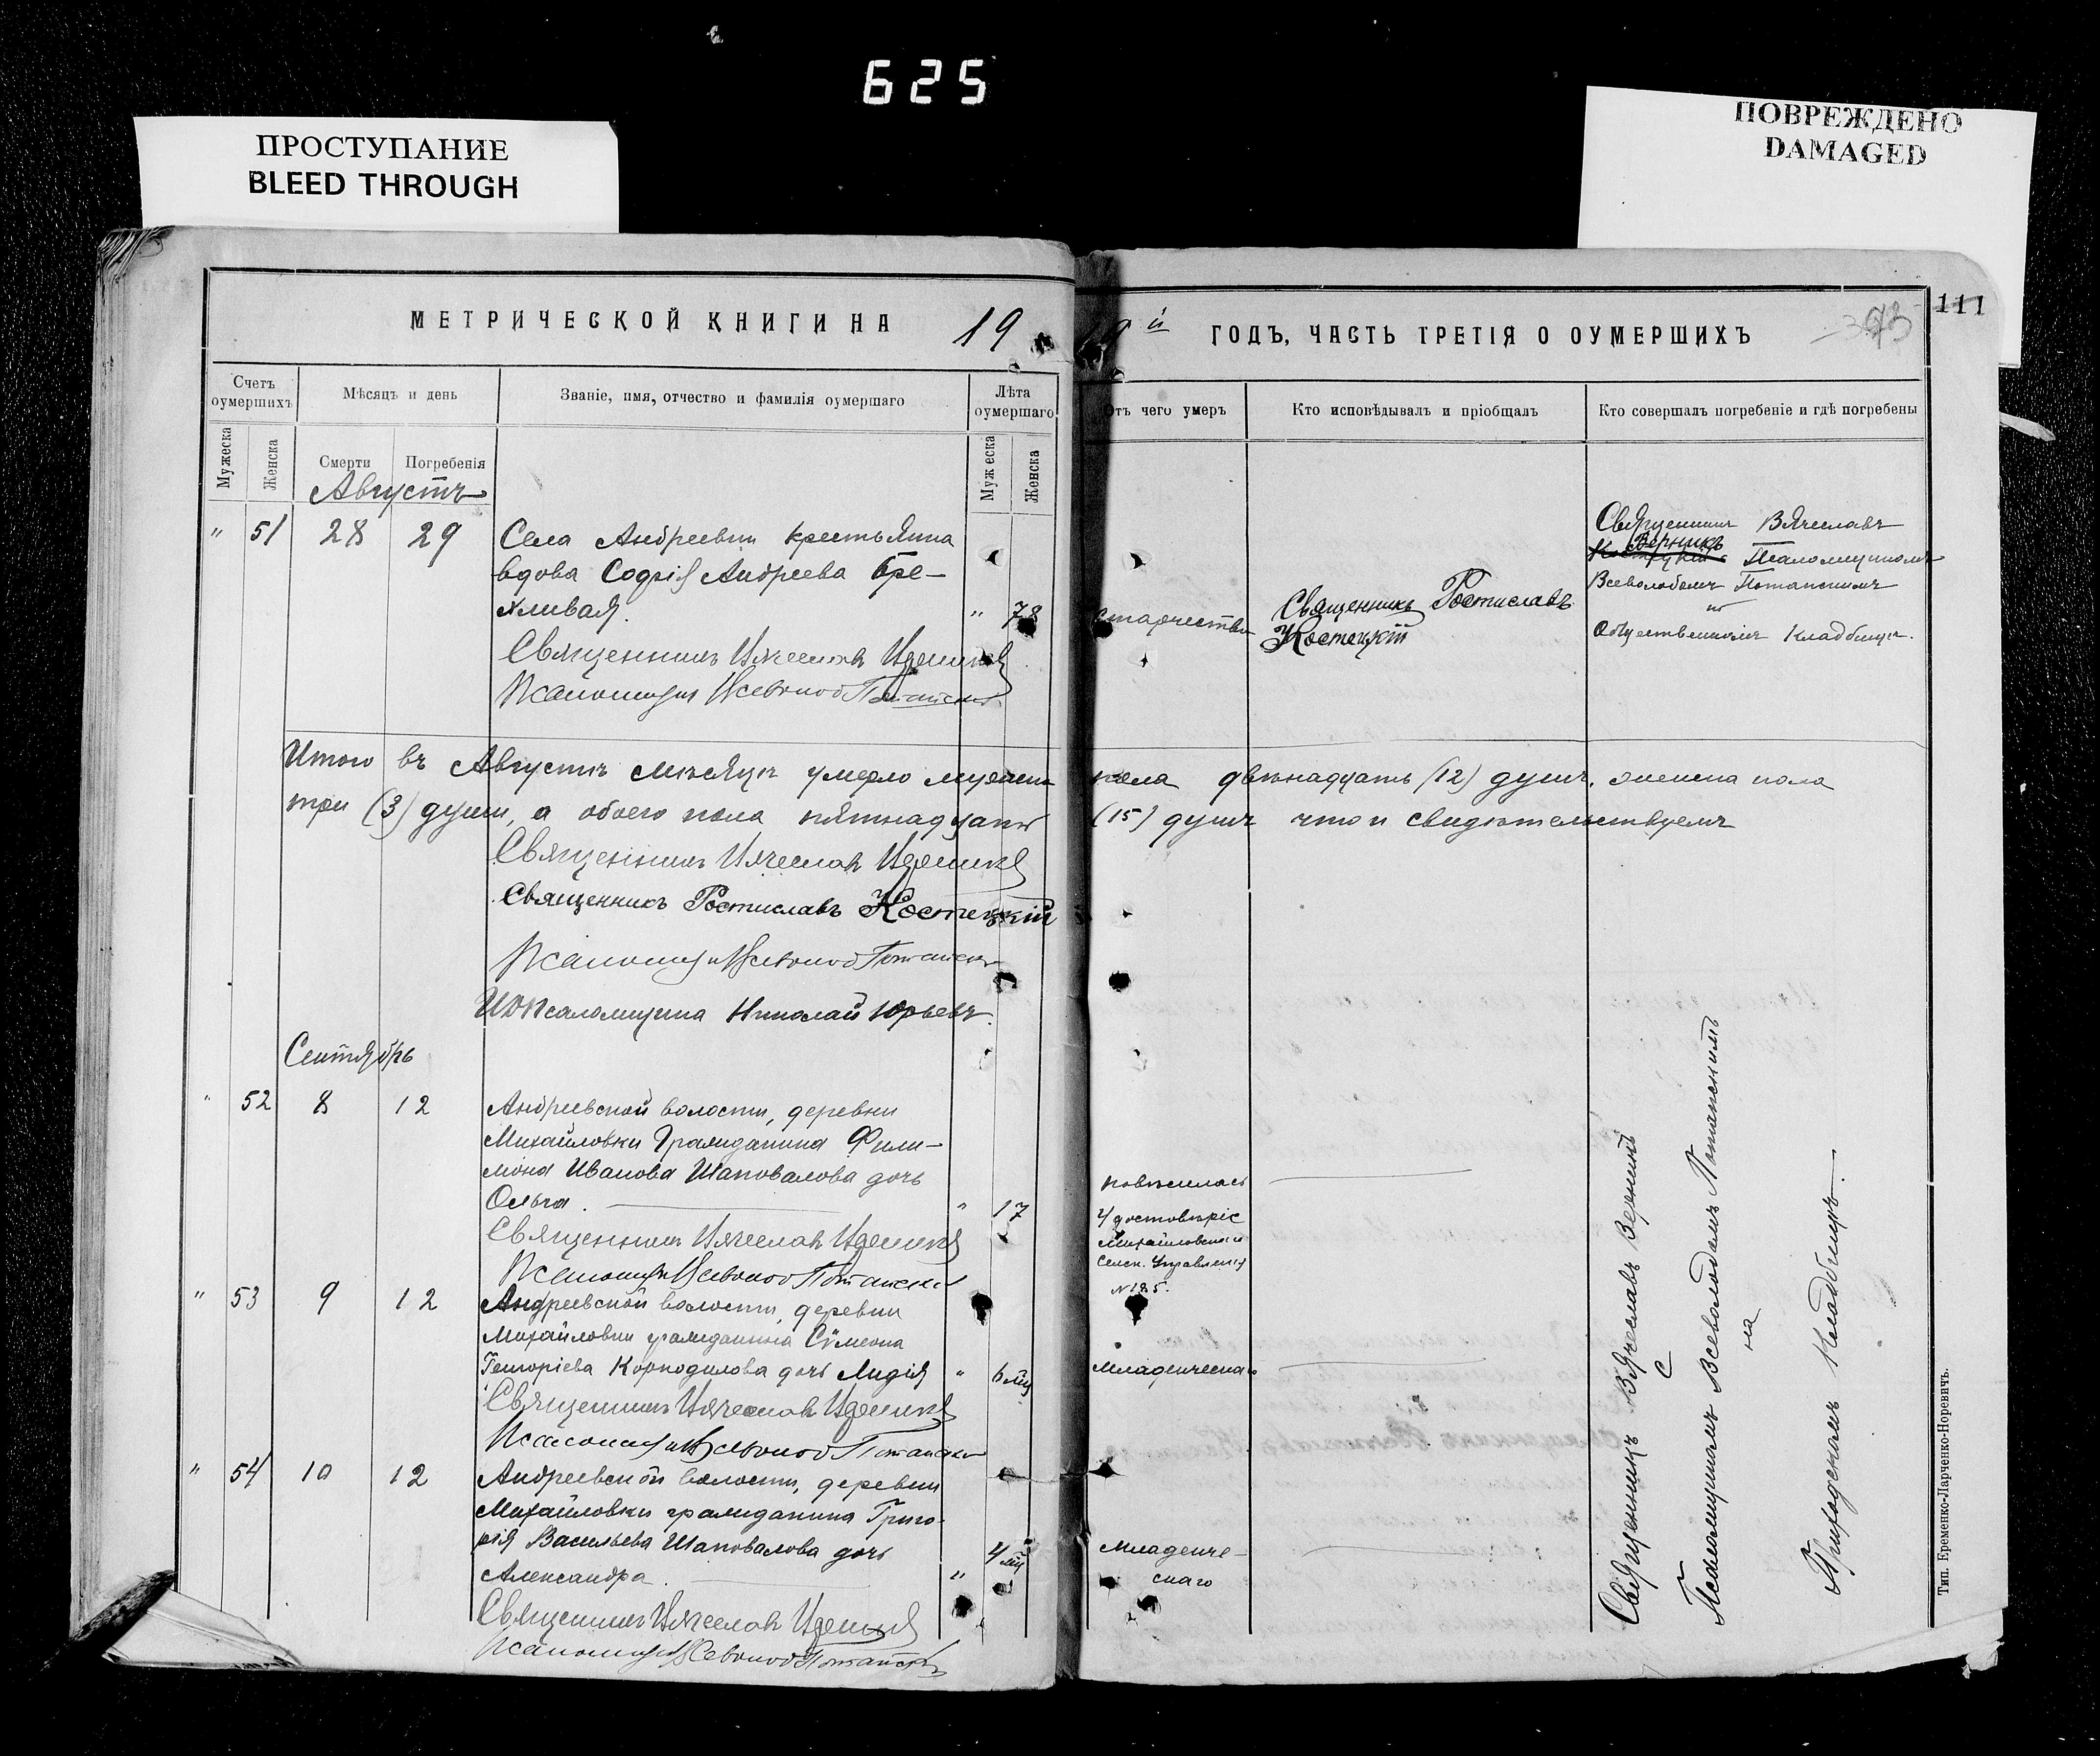 625
ПРОСТУПАНИЕ
BLEED THROUGH
ПОВРЕЖДЕНО
DAMAGED
МЕТРИЧЕСКОЙ КНИГИ НА 19
й ГОДЪ, ЧАСТЬ ТРЕТІЯ О ОУМЕРШИХЪ
111
Счетъ оумершихъ
Мѣсяцъ и день
Званіе, имя, отчество и фамилія оумершаго
Лѣта оумершаго
Отъ чего умеръ
Кто исповѣдывалъ и пріобщалъ
Кто совершалъ погребеніе и гдѣ погребены
Мужеска
Женска
Смерти
Погребенія
Муж еска
Женска
Августъ
" 51 28 29
Села Андреевки крестьянка
вдова Софія Андреева Бре-
хливая. " 78
старчества
Священникъ Ростиславъ
Костецкій
Священникъ Вячеславъ
Верникъ Псаломщикомъ
Всеволодомъ Потапскимъ
на
Общественномъ Кладбищѣ.
Священникъ Вячеславъ Верникъ
Псаломщикъ Всеволод Потапскій
Итого въ Августѣ мѣсяцѣ умерло мужска пола двѣнадцать (12) душъ, женска пола
три (3) души, а обоего пола пятнадцать (15) душъ что и свидѣтельствуемъ
Священникъ Вячеславъ Верникъ
Священникъ Ростиславъ Костецкій
Псаломщикъ Всеволод Потапскій
ИД Псаломщика Николай Юрьевъ.
Сентябрь
" 52 8 12
Андреевской волости, деревни
Михайловки Гражданина Фили-
мона Иванова Шаповалова дочь
Ольга. " 17
повѣсилась
Удостовѣріе
Михайловскаго
Сельск. Управленія
№ 185.
Священникъ Вячеславъ Верникъ
Псаломщикъ Всеволод Потапскій
" 53 9 12
Андреевской волости, деревни
Михайловки гражданина Сѵмеона
Георгіева Корнодилова дочь Лидія " 6 мѣс
младенческаго
Священникъ Вячеславъ Верникъ
Псаломщикъ Всеволод Потапскій
" 54 10 12
Андреевской волости, деревни
Михайловки гражданина Григо-
рія Васильева Шаповалова дочь
Александра. " 4 мѣс
младенче-
скаго
Священникъ Вячеславъ Верникъ
Псаломщикъ Всеволод Потапскій
Священникъ Вячеславъ Верникъ
с
Псаломщикомъ Всеволодомъ Потапскимъ
на
Приходскомъ кладбищѣ.
Тип. Еременко-Ларченко-Норевичъ.